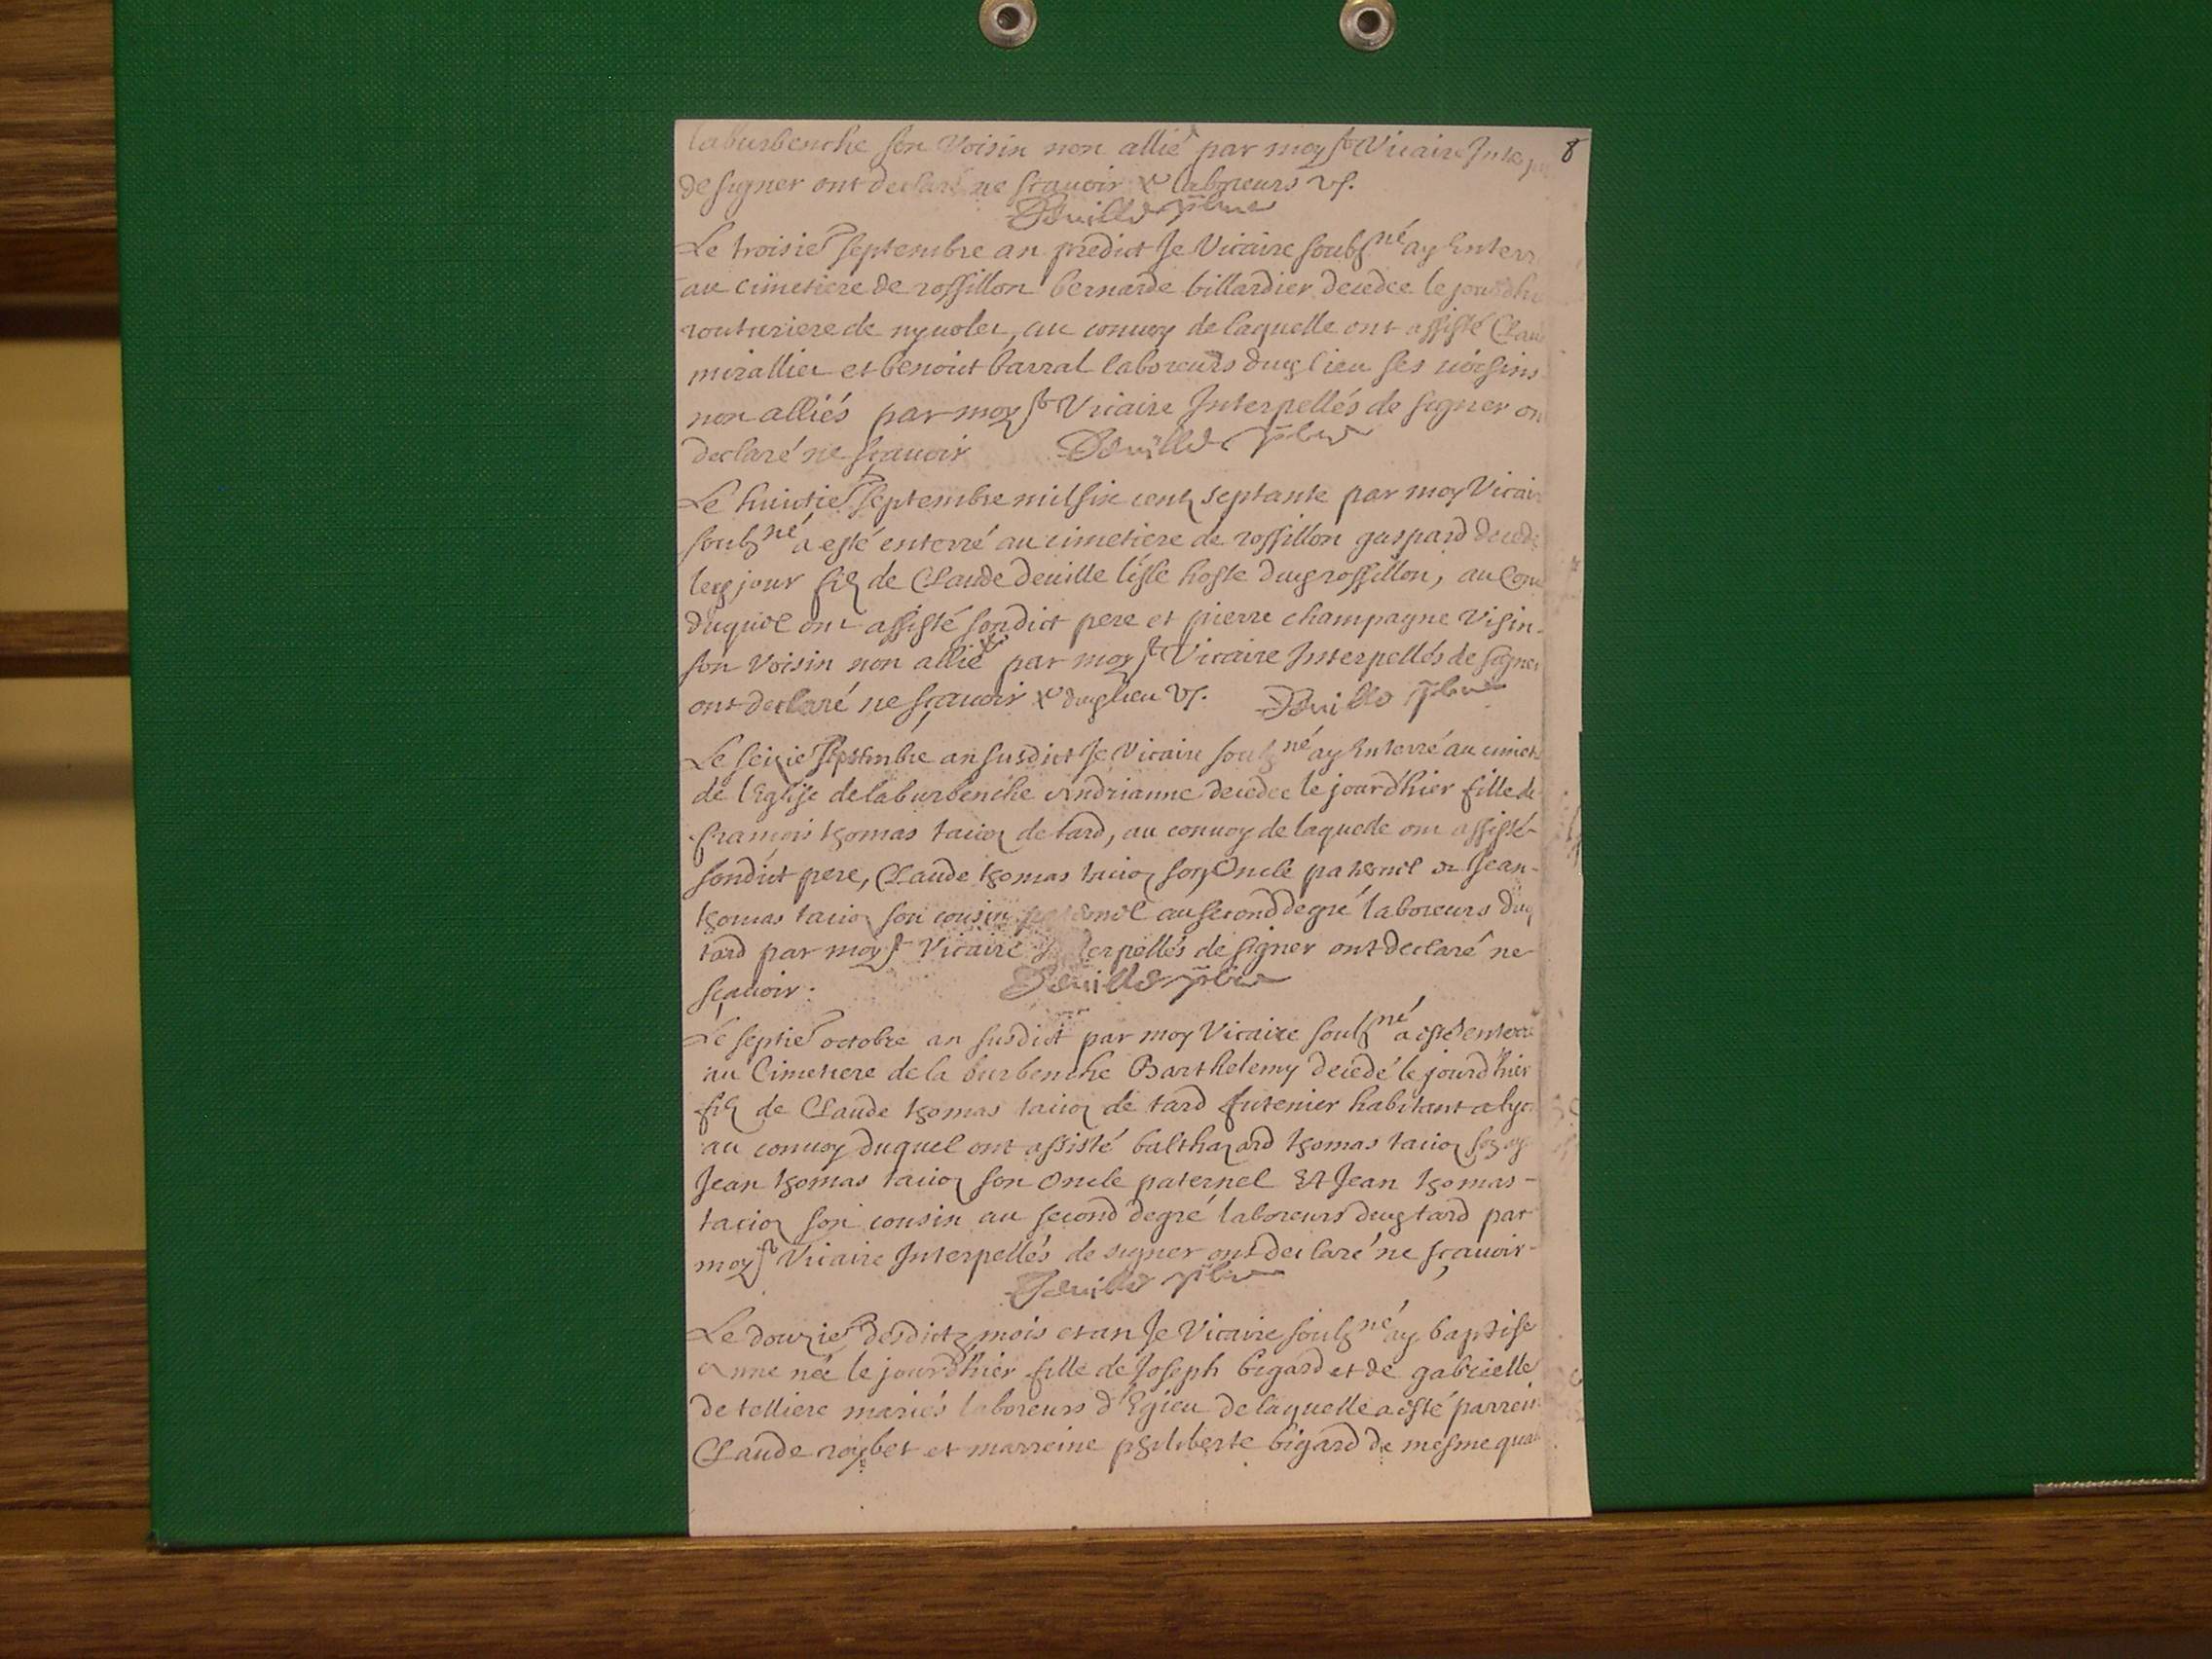 8
laburbenche son Voisin non allié par moy st Vicaire
de signer ont declaré ne scauoir & laboreurs vs.
Deuille pbre
Le troisie septembre an predict Je Vicaire soubsné ay Enterr
au cimetiere de rossillon bernarde billardier decedee le jourdhi
routuriere de nyuolet, au conuoy de laquelle ont assisté Clau
mirallier et benoit barral laboreurs dud lieu ses uoisins
non alliés par moy st Vicaire Interpellés de signer on
declaré ne sçauoir Deuille pbre
Le huictie septembre mil six cent septante par moy Vicair
soubsné a esté enterré au cimetiere de rossillon gaspard decedé
led jour filz de Claude deuille hoste dud rossillon, au Con
duquel ont assisté sondict pere et pierre champagne
son Voisin non allié par moy st Vicaire Interpellés de signer
ont declaré ne sçauoir & dud lieu vs. Deuille pbre
Le seizie septembre an susdict Je Vicaire soubsné ay Enterré au cimet
de l'Eglise de laburbenche Andrianne decedee le jourd'hier fille de
françois thomas tacion de tard, au conuoy de laquelle ont assisté
sondict pere, Claude thomas tacion son Oncle paternel & Jean-
thomas tacion son cousin paternel au second degré laboreurs dud
tard par moy st Vicaire Interpellés de signer ont declaré ne
sçauoir. Deuille pbre
Le septie octobre an susdict par moy Vicaire soubsné a esté enterré
au Cimetiere de la burbenche Barthelemy decedé le jourd'hier
filz de Claude thomas tacion de tard futenier habitant a lyo
au conuoy duquel ont assisté balthazard thomas tacion
Jean thomas tacion son oncle paternel Et Jean thomas-
tacion son cousin au second degré laboreurs dud tard par
moy st Vicaire Interpellés de signer ont declaré ne sçauoir-
Deuille pbre
Le douzie desdictz mois et an Je Vicaire soubsné ay baptisé
Anne née le jourd'hier fille de Joseph bigard et de gabrielle
de telliere mariés laboreurs d'Egieu de laquelle a esté parrein
Claude roybet et marreine philiberte bigard de mesme qual